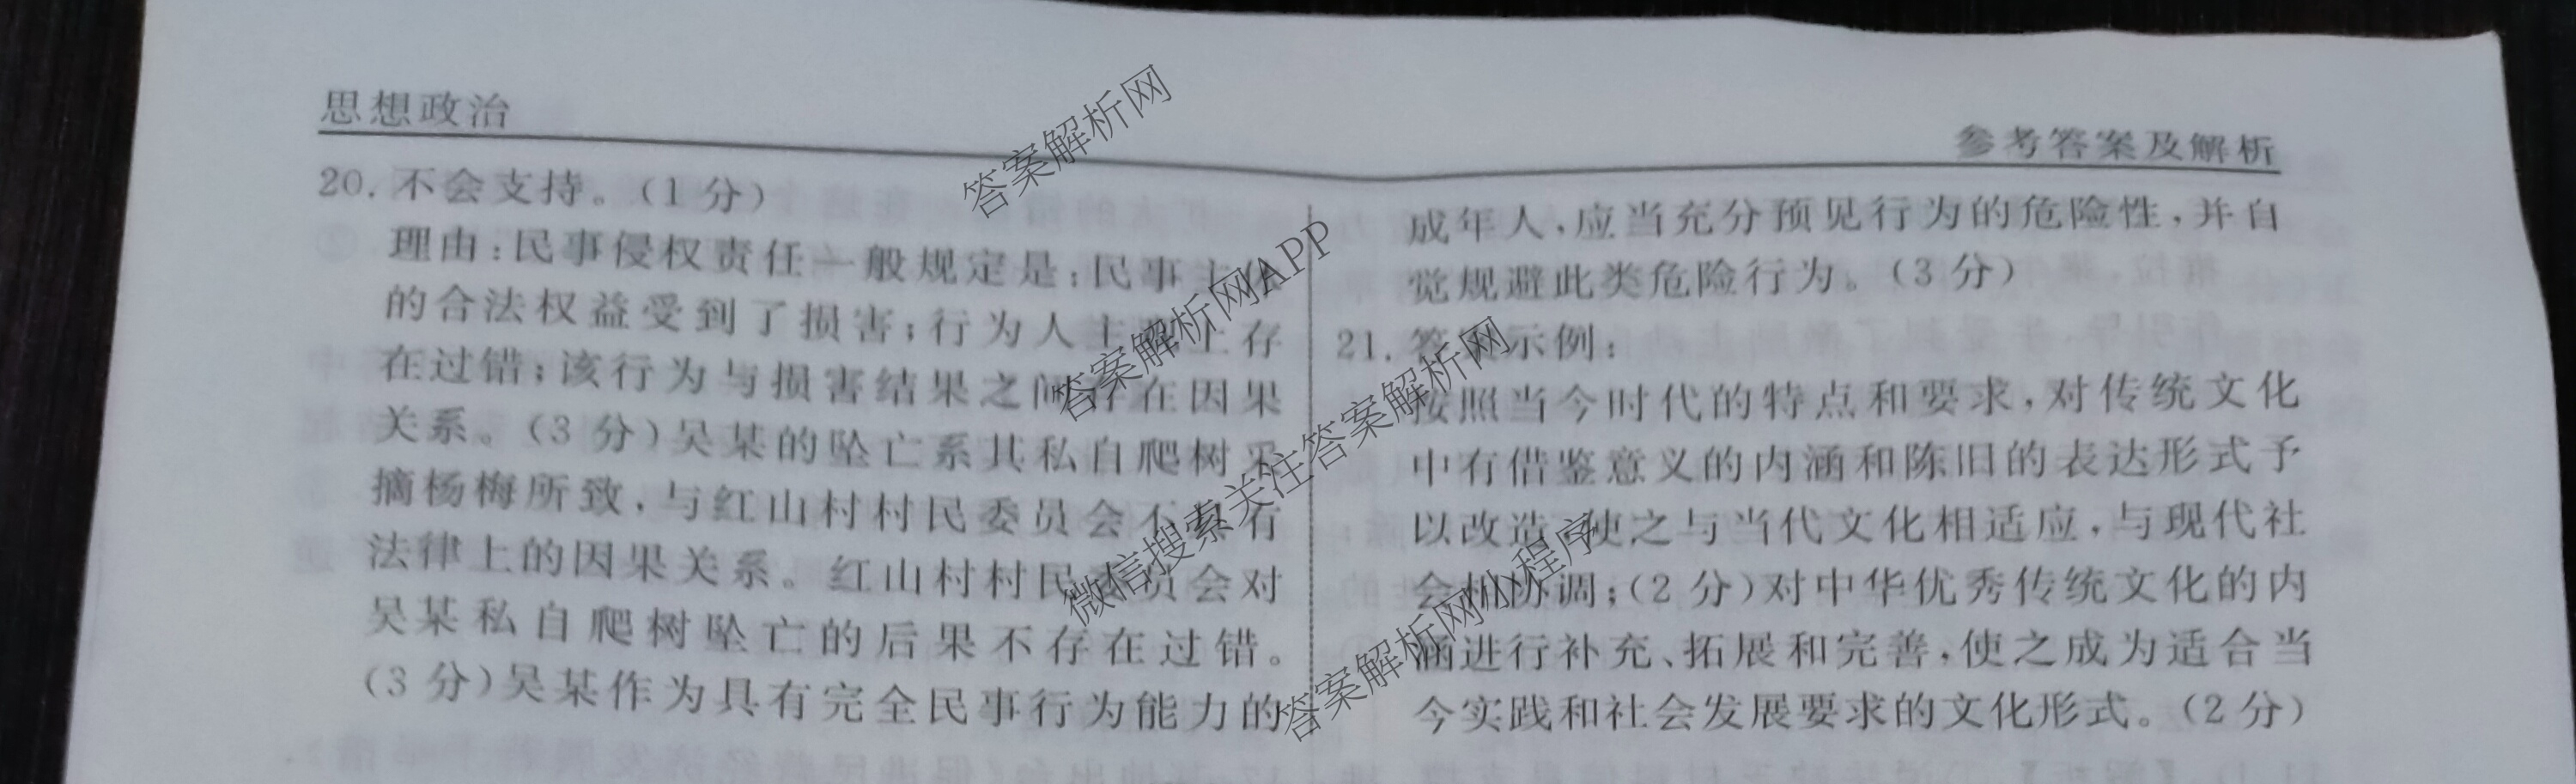 思想政治
参考答案及解析
20. 不会支持。(1 分)
理由:民事侵权责任一般规定是:民事主体
的合法权益受到了损害;行为人主观上存
在过错;该行为与损害结果之间存在因果
关系。(3 分)吴某的坠亡系其私自爬树采
摘杨梅所致,与红山村村民委员会不具有
法律上的因果关系。红山村村民委员会对
吴某私自爬树坠亡的后果不存在过错。
(3 分)吴某作为具有完全民事行为能力的
成年人,应当充分预见行为的危险性,并自
觉规避此类危险行为。(3 分)
21. 答案示例:
按照当今时代的特点和要求,对传统文化
中有借鉴意义的内涵和陈旧的表达形式予
以改造,使之与当代文化相适应,与现代社
会相协调;(2 分)对中华优秀传统文化的内
涵进行补充、拓展和完善,使之成为适合当
今实践和社会发展要求的文化形式。(2 分)
答案解析网
答案解析网APP
微信搜索关注答案解析网
答案解析网小程序